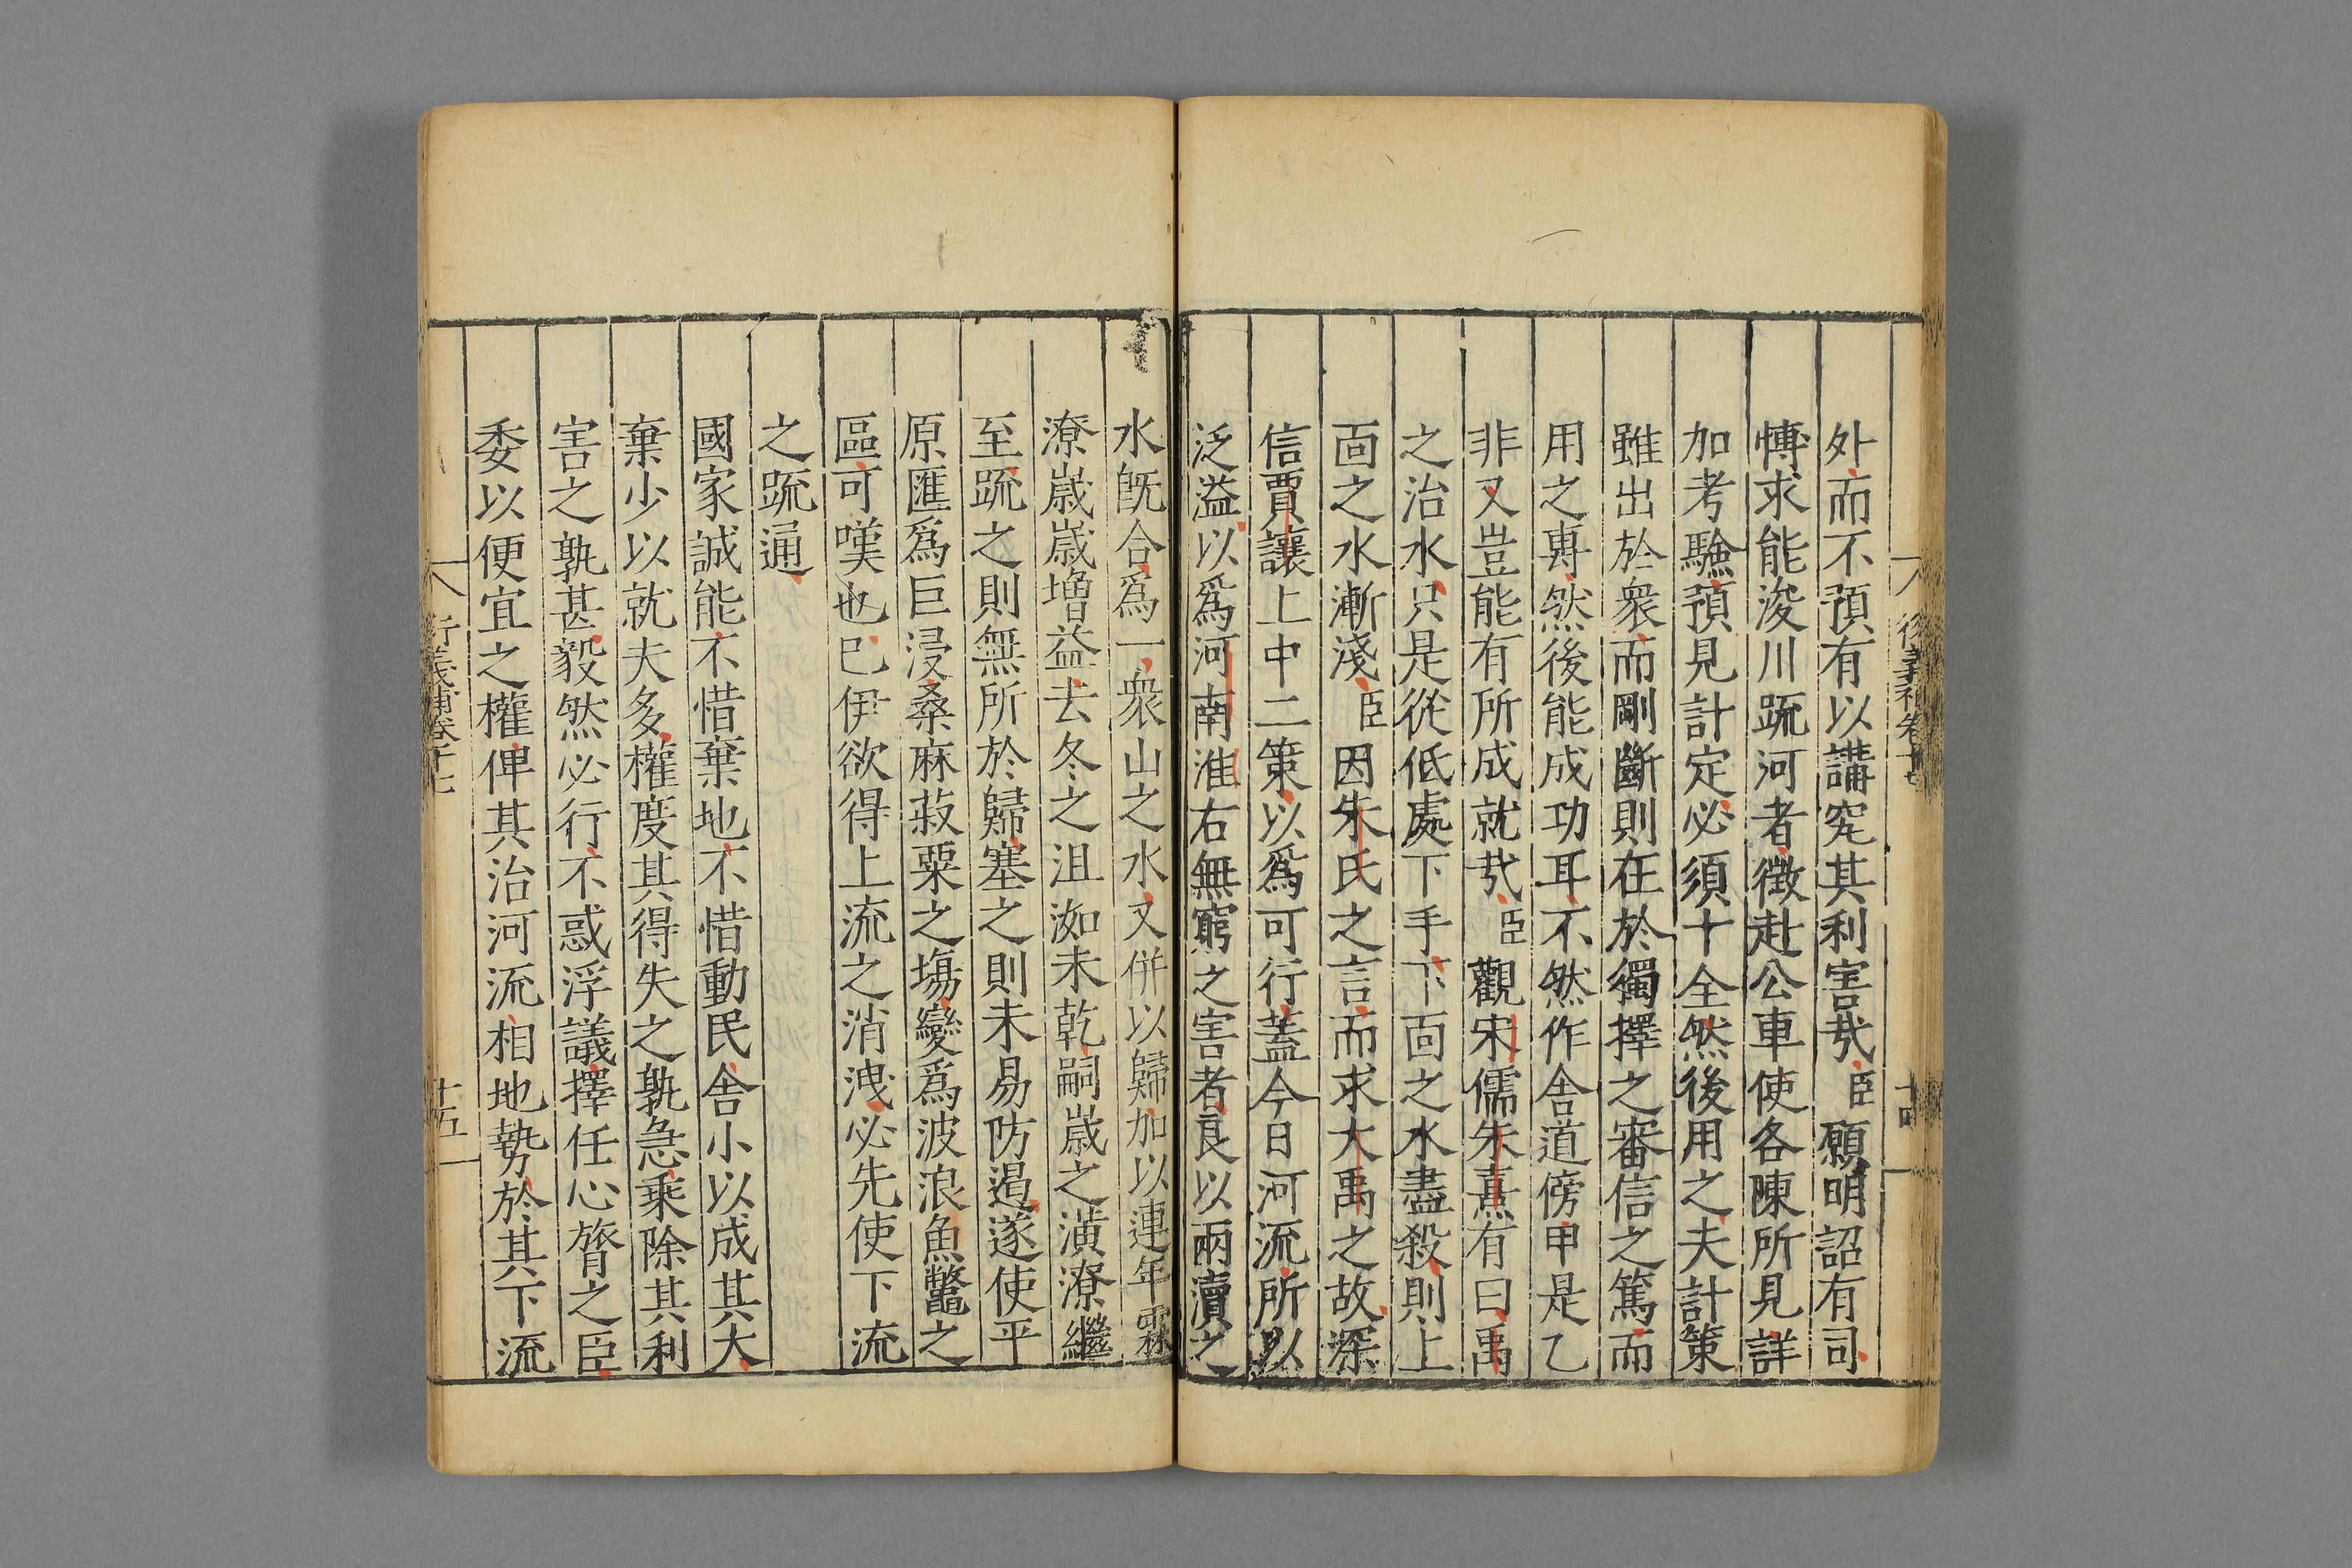 外而不預有以講究其利害㢤臣願明詔有司
愽求能浚川疏河者徴赴公車使各陳所見詳
加考驗預見計定必須十全然後用之夫計策
雖出於衆而剛斷則在於獨擇之審信之篤而
用之專然後能成功耳不然作舍道傍甲是乙
非又豈能有所成就㢤臣觀宋儒朱熹有曰禹
之治水只是從低處下手下面之水盡殺則上
面之水漸淺臣因朱氏之言而求大禹之故深
信賈讓上中二策以爲可行蓋今日河流所以
泛溢以爲河南淮右無窮之害者良以兩瀆之
水旣合爲一衆山之水又併以歸加以連年霖
潦歲歲增益去冬之沮洳未乾嗣歲之潢潦繼
至疏之則無所於歸塞之則未易防遏遂使平
原匯爲巨浸桑麻菽粟之塲變爲波浪魚鼈之
區可嘆也已伊欲得上流之消洩必先使下流
之疏通
國家誠能不惜棄地不惜動民舍小以成其大
棄少以就夫多權度其得失之孰急乘除其利
害之孰甚毅然必行不惑浮議擇任心膂之臣
委以便宜之權俾其治河流相地勢於其下流
行義補卷十七
十五